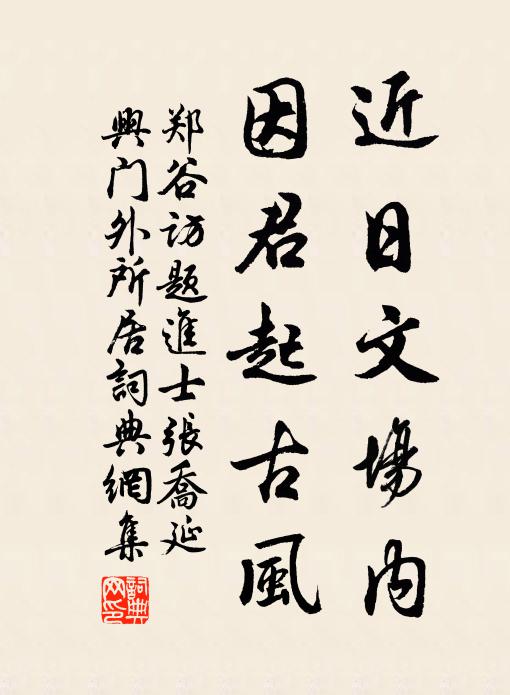 近日文場内
因君起古風
郑谷访题進士張喬延
興门外所居詞典網集
詞典網印